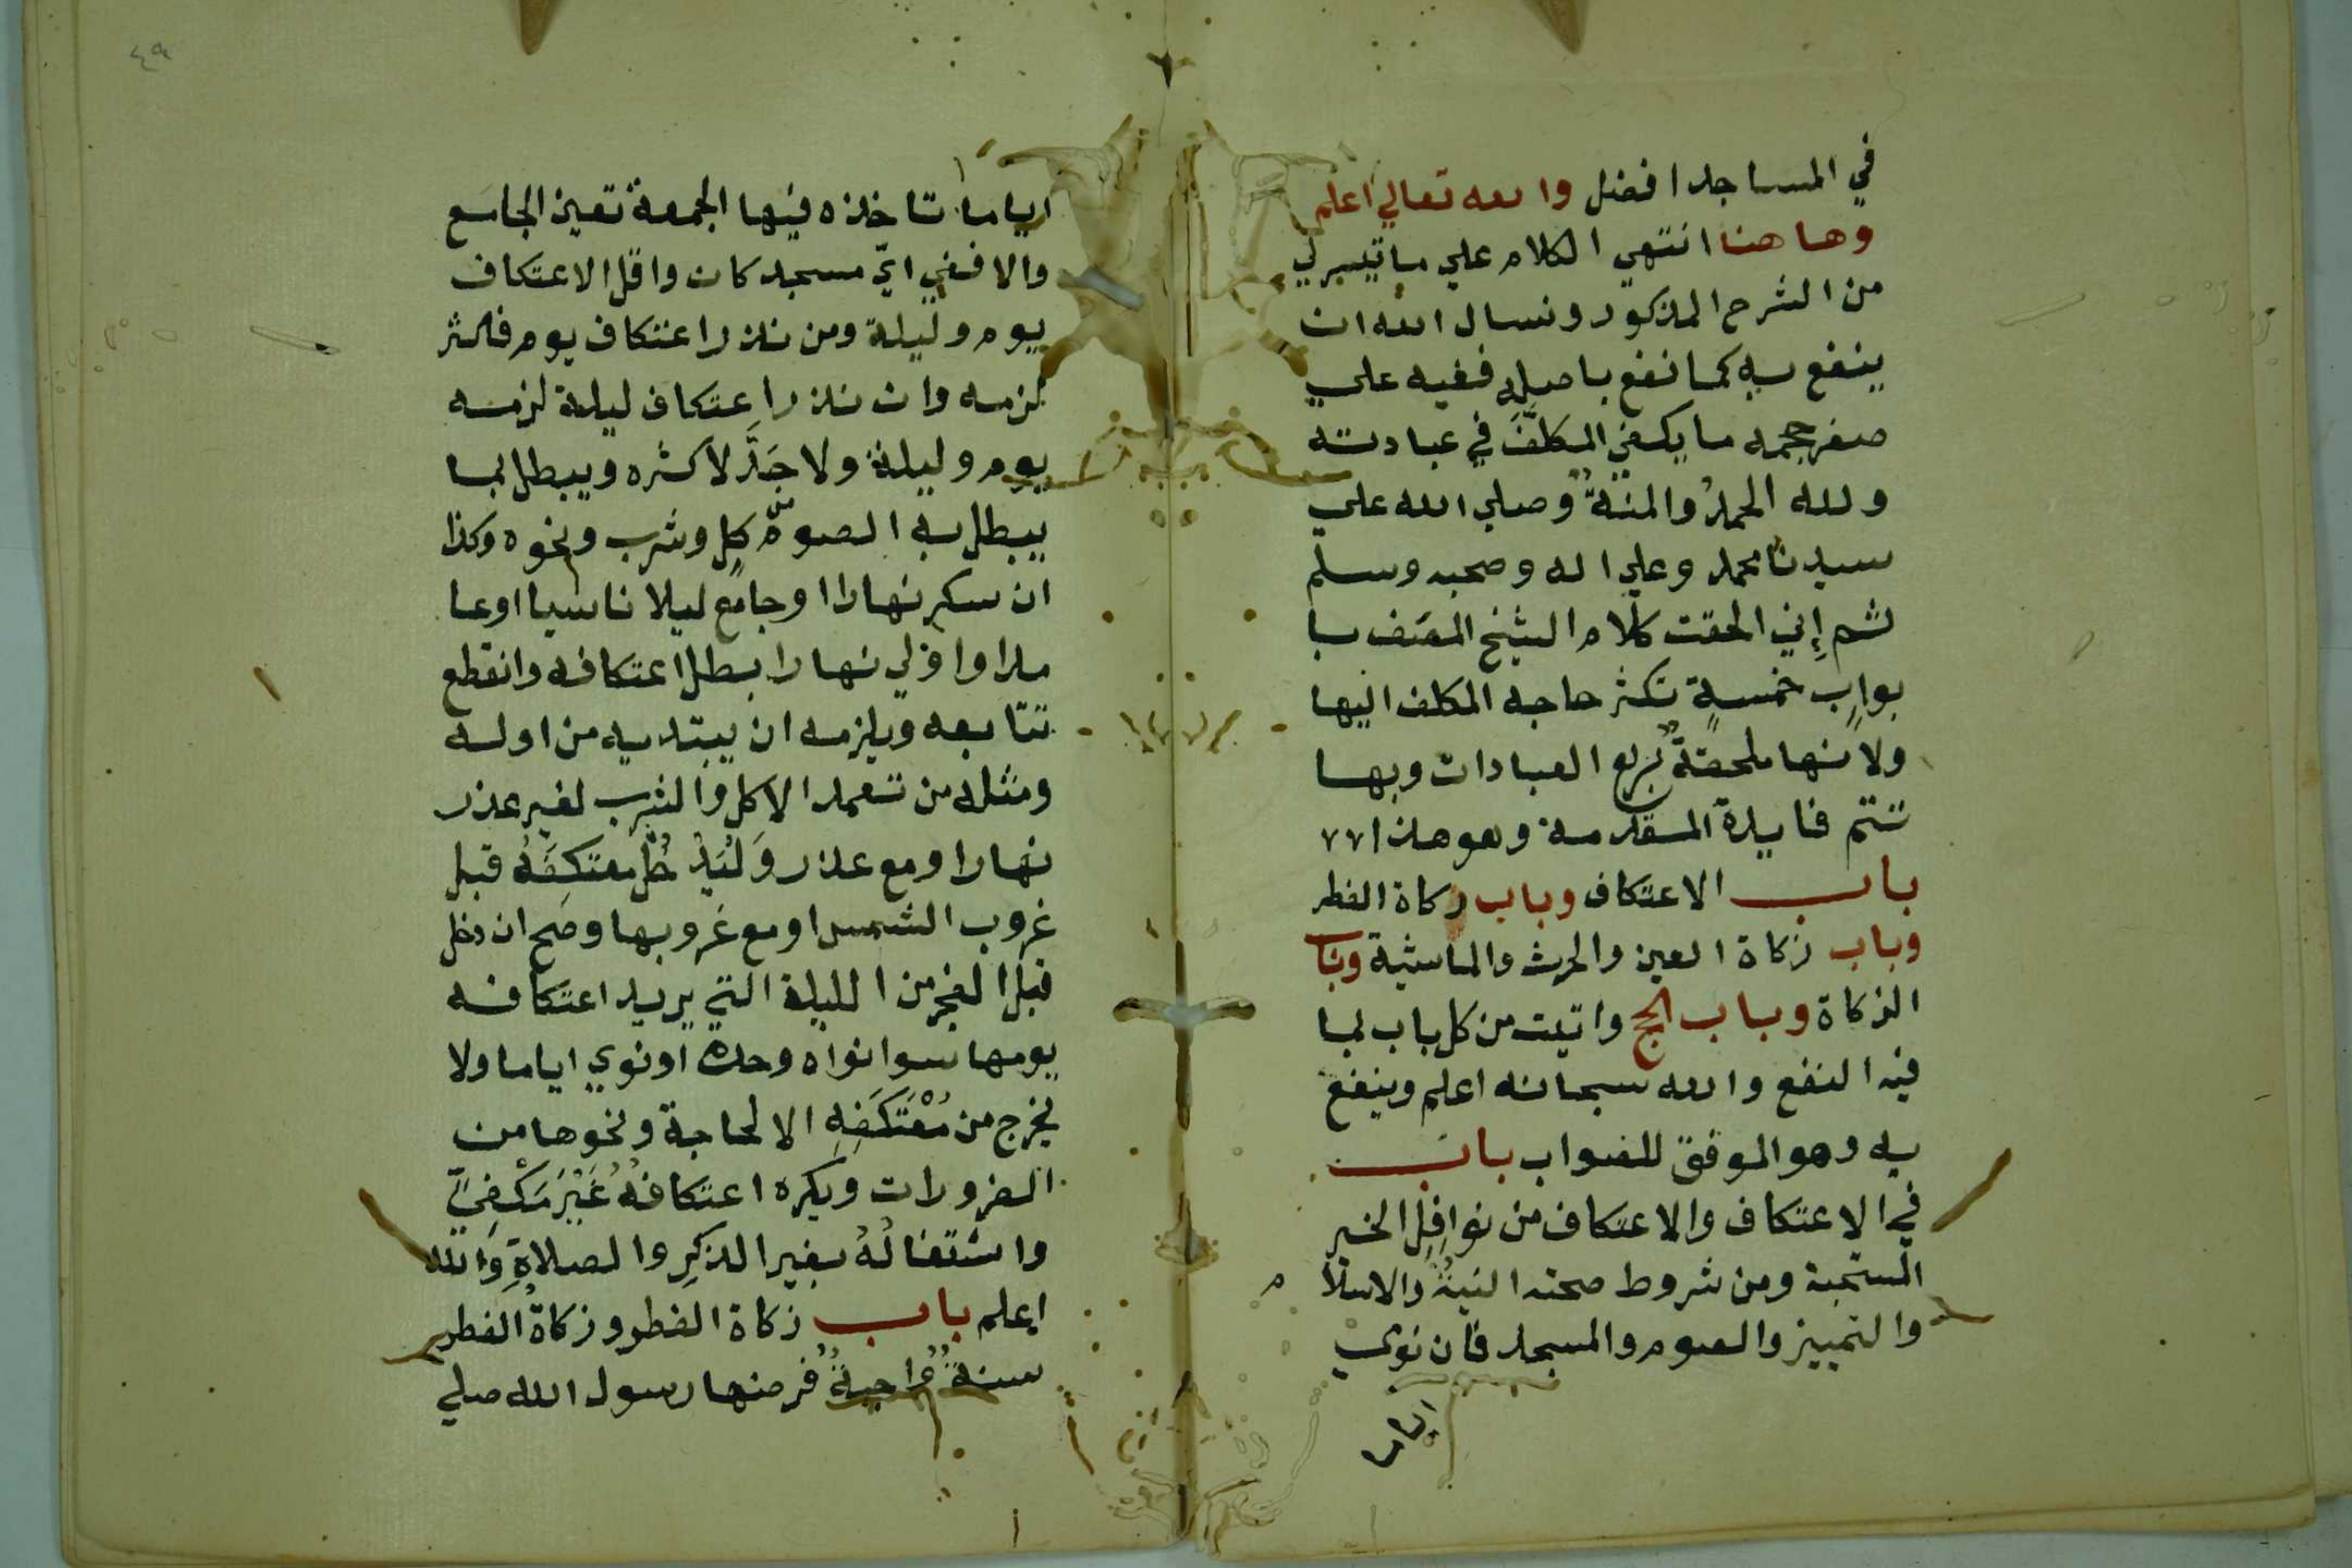 في المساجد افضل والله تعالي اعلم
وها هنا انتهي الكلام علي ما تيسر لي
من الشرح المذكور ونسال الله ان
ينفع به كما نفع باصله ففيه علي
صغر حجمه ما يكفي المكلَّفَ في عبادته
ولله الحمدُ والمنةُ وصلي الله علي
سيدنا محمد وعلي اله وصحبه وسلم
ثم إِني الحقت كلام الشيخ المصنف با
بوابٍ خمسةٍ تكثر حاجة المكلف اليها
ولانها ملحقةٌ بربع العبادات وبها
تتم فايدة المقدمة وهو هذا
باب الاعتكاف وباب زكاة الفطر
وباب زكاة العين والحرث والماشية وباب
الزكاة وباب الحج واتيت من كل باب لما
فيه النفع والله سبحانه اعلم وينفع
به وهو الموفق للصواب باب
في الاعتكاف والاعتكاف من نوافِلِ الخير
المستحبة ومن شروط صحته النيةُ والاسلام
والتمييز والصوم والمسجد فان نوي
اياما
٤٩
اياما تاخذه فيها الجمعة تعين الجامع
والا ففي ايّ مسجد كان واقل الاعتكاف
يوم وليلة ومن نذر اعتكاف يوم فاكثر
لزمه وان نذر اعتكاف ليلة لزمه
يوم وليلة ولا حَدَّ لاكثره ويبطل بما
يبطل به الصوم من كل وشرب ونحوه وكذا
ان سكر نهارا او جامع ليلا ناسيا او عا
مدا او انزل نهارا بطل اعتكافه وانقطع
تتابعه ويلزمه ان يبتديه من اوله
ومثله من تعمد الاكل والشرب لغير عذر
نهارا ومع عذر وَلْيَدْخُلْ معتكِفَهُ قبل
غروب الشمس او مع غروبها وصح ان دخل
قبل الفجر من الليلة التي يريد اعتكافه
يومها سوا نواه وحده او نوي اياما ولا
يخرج من مُعْتَكَفِهِ الا لحاجة ونحوها من
الضرورات ويكره اعتكافهُ غَيْرَ مَكْفِيٍّ
واشتغالُهُ بغير الذكرِ والصلاةِ وَالله
اعلم باب زكاة الفطر وزكاةُ الفطر
سنةٌ واجبةٌ فرضها رسول الله صلي